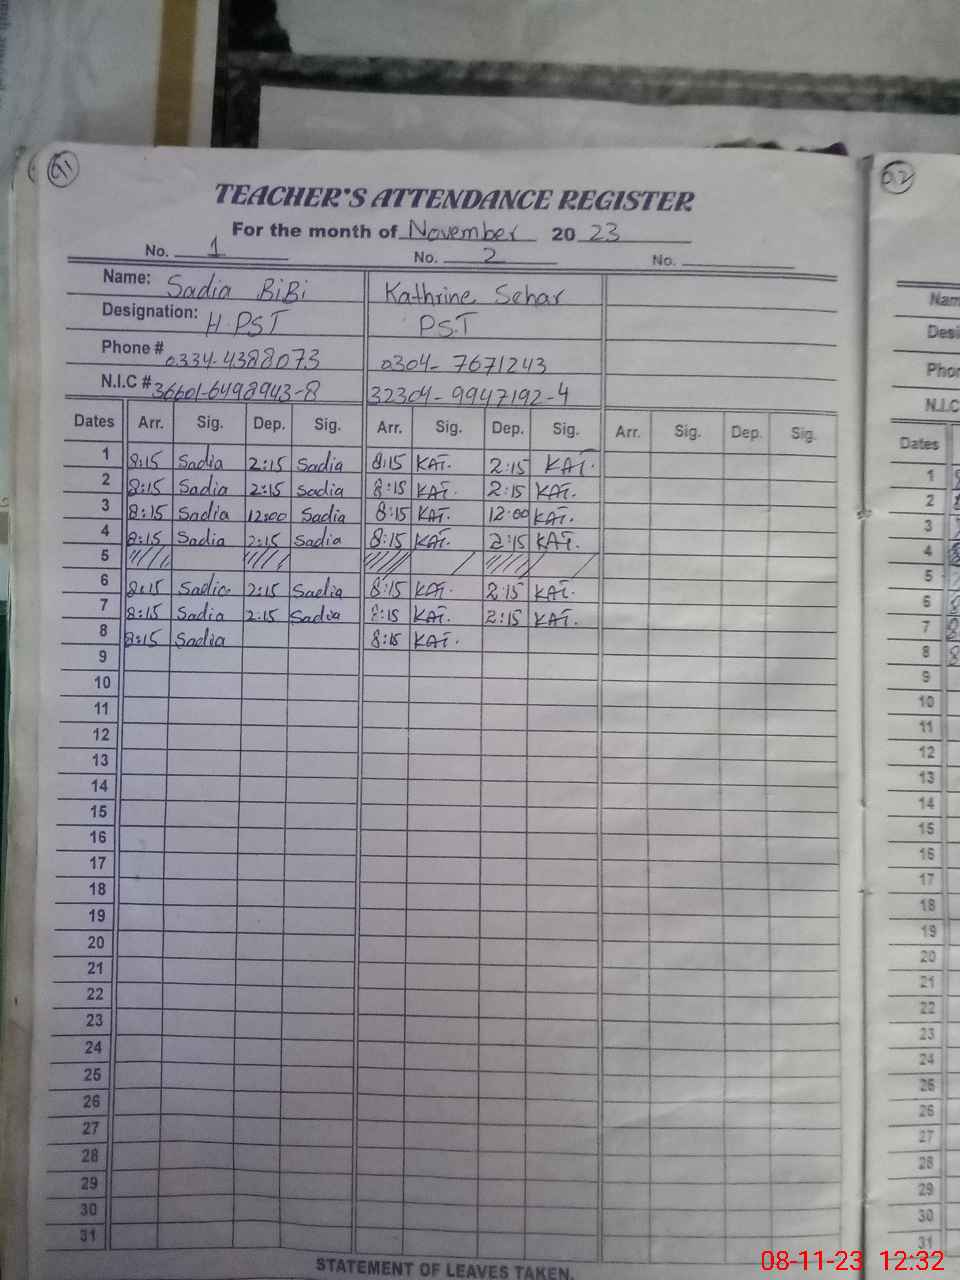 91
TEACHER'S ATTENDANCE REGISTER
For the month of November 20 23
No. 1 No. 2 No.
Name: Sadia BiBi Kathrine Sehar
Designation: H.PST PS.T
Phone # 0334-4388073 0304-7671243
N.I.C # 36601-6498943-8 32304-9947192-4
Dates Arr. Sig. Dep. Sig. Arr. Sig. Dep. Sig. Arr. Sig. Dep. Sig.
1 8:15 Sadia 2:15 Sadia 8:15 KAT. 2:15 KAT.
2 8:15 Sadia 2:15 Sadia 8:15 KAT. 2:15 KAT.
3 8:15 Sadia 12:00 Sadia 8:15 KAT. 12:00 KAT.
4 8:15 Sadia 2:15 Sadia 8:15 KAT. 2:15 KAT.
5
6 8:15 Sadia 2:15 Sadia 8:15 KAT. 2:15 KAT.
7 8:15 Sadia 2:15 Sadia 8:15 KAT. 2:15 KAT.
8 8:15 Sadia 8:15 KAT.
9
10
11
12
13
14
15
16
17
18
19
20
21
22
23
24
25
26
27
28
29
30
31
STATEMENT OF LEAVES TAKEN.
92
Nam
Desi
Phon
N.I.C
Dates
1
2
3
4
5
6
7
8
9
10
11
12
13
14
15
16
17
18
19
20
21
22
23
24
25
26
27
28
29
30
31
08-11-23 12:32